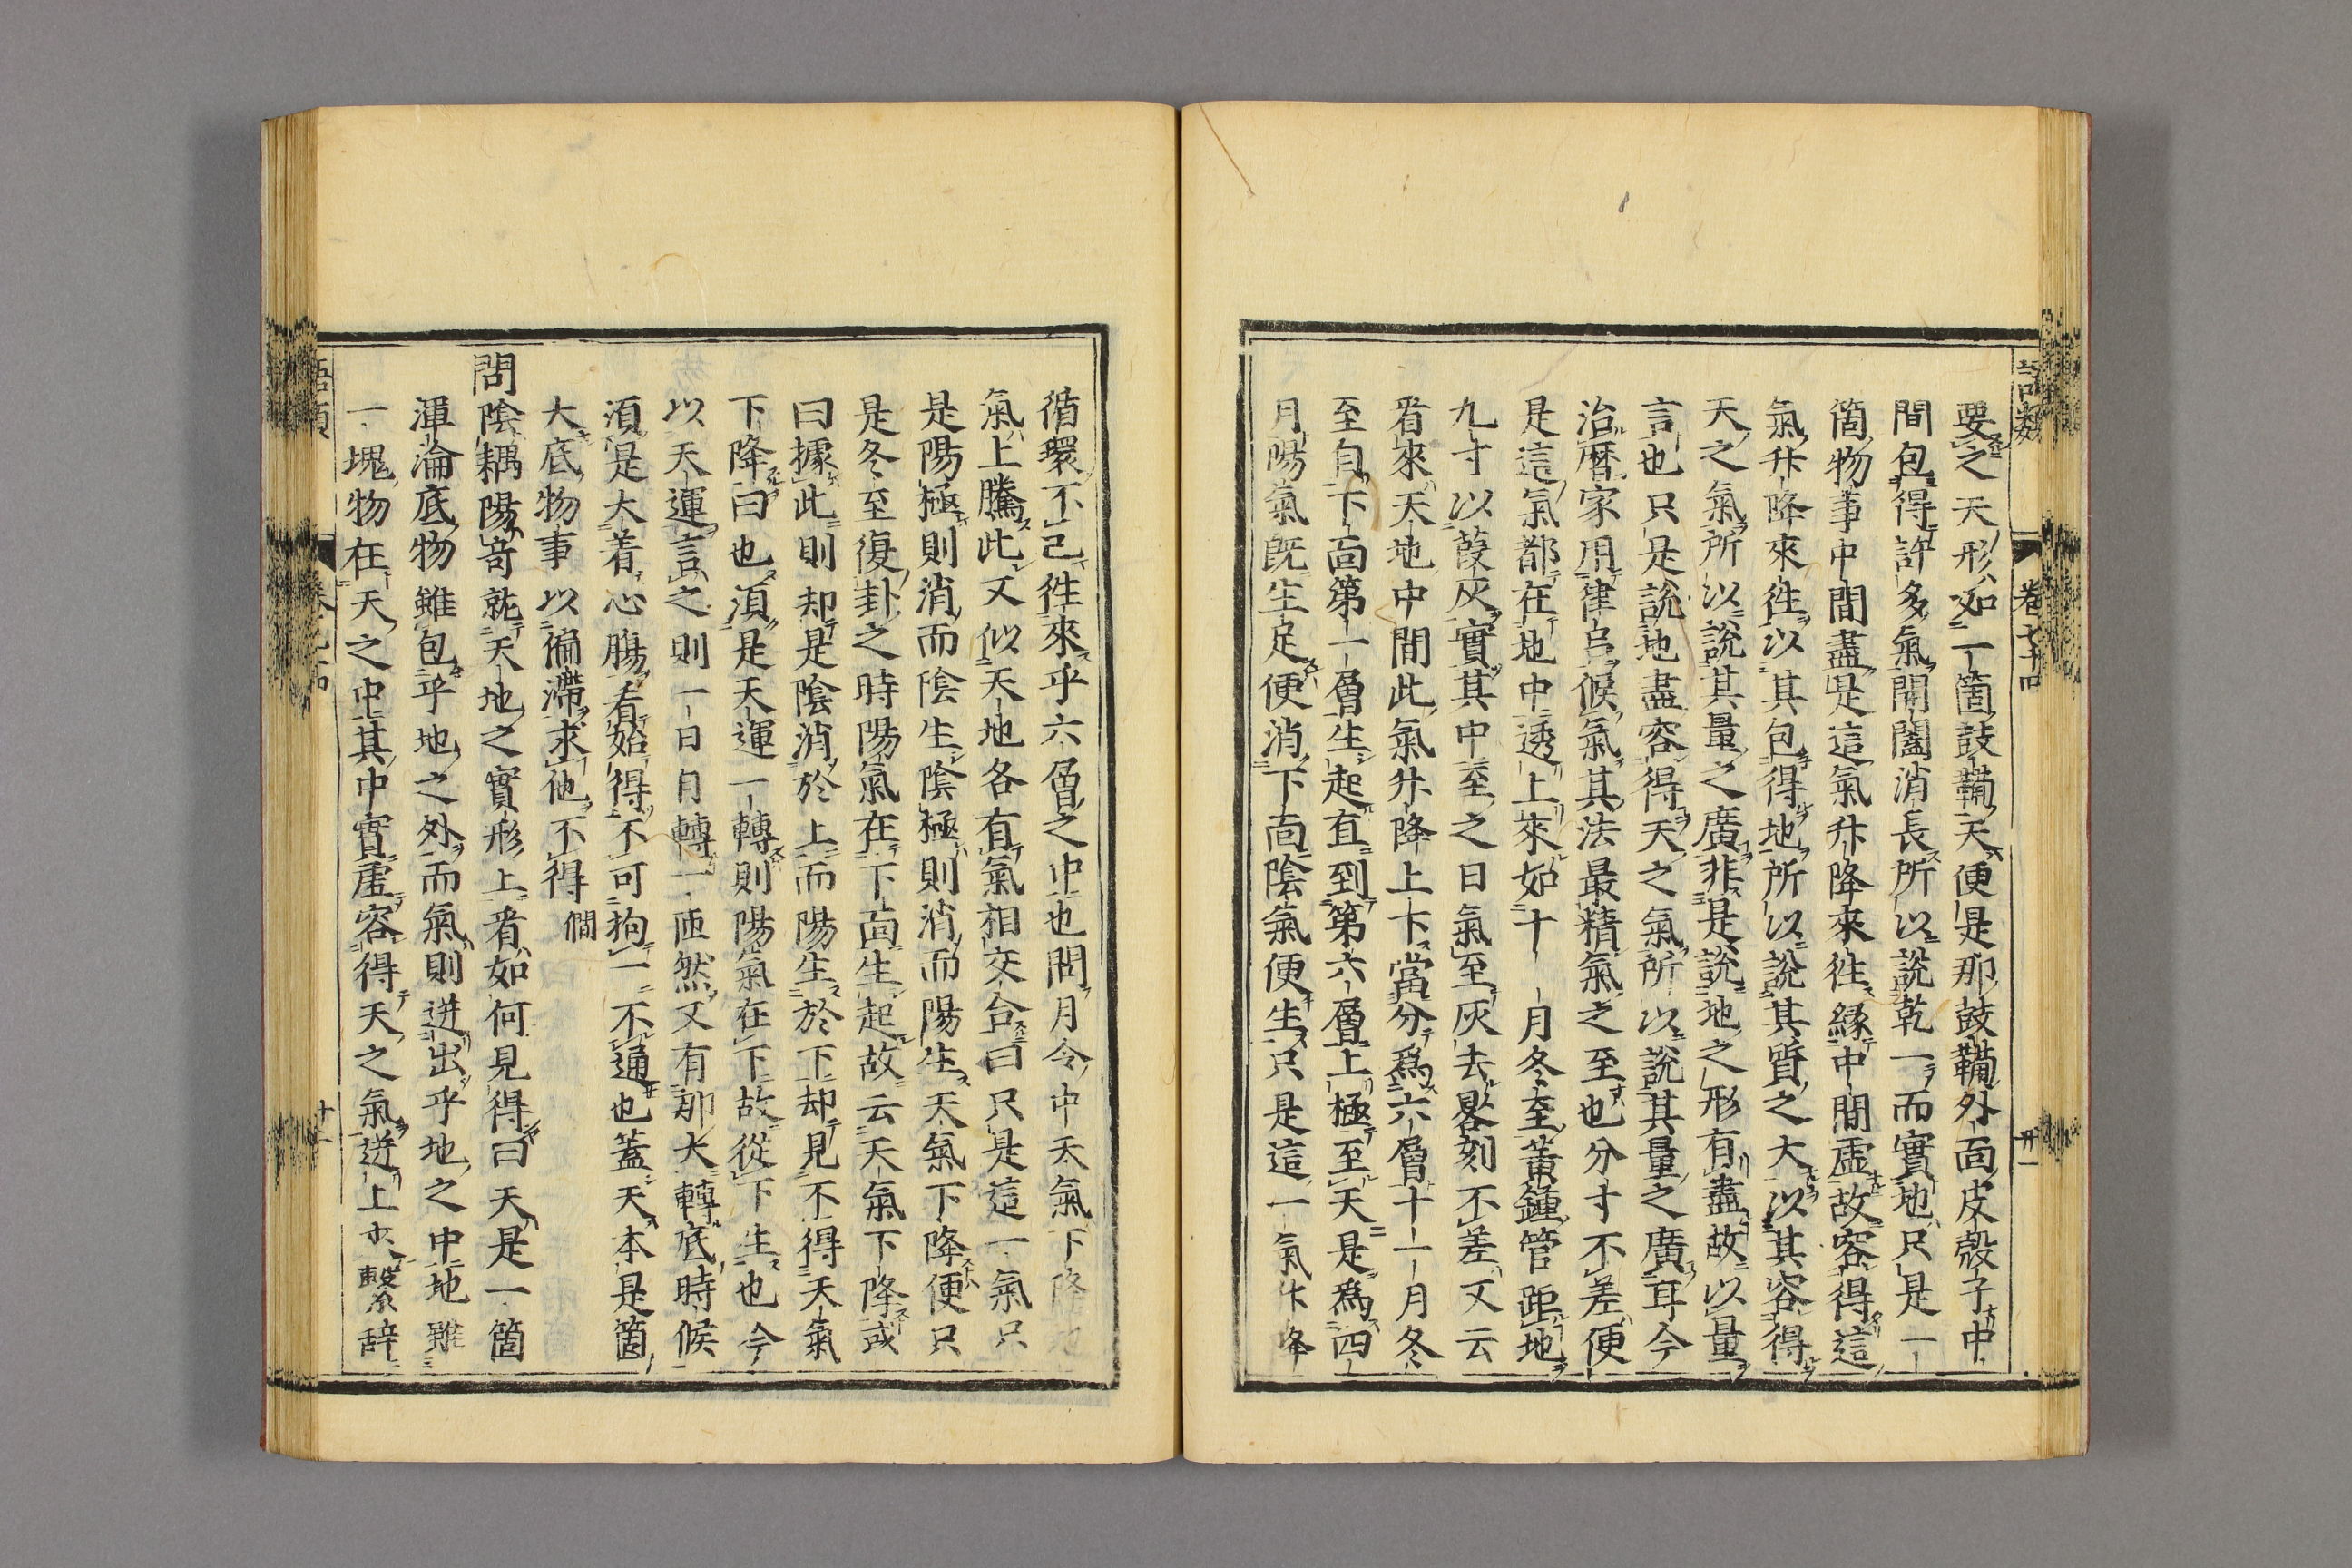 語類 卷七十四 廿一
要之天形如一箇鼓鞴天便是那鼓鞴外面皮殼子中
間包得許多氣開闔消長所以說乾一而實地只是一
箇物事中間盡是這氣升降來徃緣中間虛故容得這
氣升降來徃以其包得地所以說其質之大以其容得
天之氣所以說其量之廣非是說地之形有盡故以量
言也只是說地盡容得天之氣所以說其量之廣耳今
治曆家用律呂候氣其法最精氣之至也分寸不差便
是這氣都在地中透上來如十一月冬至黃鍾管距地
九寸以葭灰實其中至之日氣至灰去晷刻不差又云
看來天地中間此氣升降上下當分爲六層十一月冬
至自下面第一層生起直到第六層上極至天是爲四
月陽氣旣生足便消下面陰氣便生只是這一氣升降
循環不已徃來乎六層之中也問月令中天氣下降地
氣上騰此又似天地各有氣相交合曰只是這一氣只
是陽極則消而陰生陰極則消而陽生天氣下降便只
是冬至復卦之時陽氣在下面生起故云天氣下降或
曰據此則却是陰消於上而陽生於下却見不得天氣
下降曰也須是天運一轉則陽氣在下故從下生也今
以天運言之則一日自轉一匝然又有那大轉底時候
須是大着心腸看始得不可拘一不通也蓋天本是箇
大底物事以偏滯求他不得 僩
問陰耦陽奇就天地之實形上看如何見得曰天是一箇
渾淪底物雖包乎地之外而氣則迸出乎地之中地雖
一塊物在天之中其中實虛容得天之氣迸上來繫辭